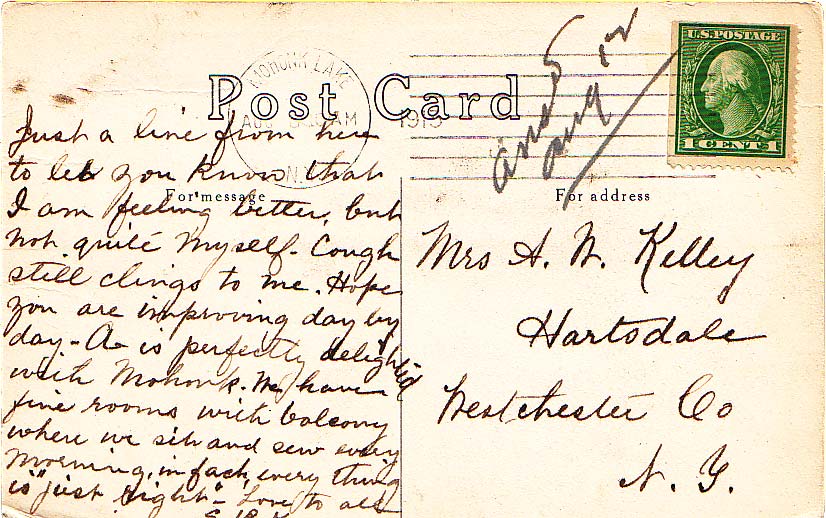 U.S. POSTAGE
1 CENT 1
MOHONK LAKE
AUG AM
N.Y.
1913
Post Card
ans'd
aug 12
For message
For address
Just a line from here
to let you know that
I am feeling better, but
not quite myself. Cough
still clings to me. Hope
you are improving day by
day - A is perfectly delighted
with Mohonk. We have
fine rooms with balcony
where we sit and sew every
morning, in fact, every thing
is "just right" - Love to all
Mrs A. W. Kelley
Hartsdale
Westchester Co
N. Y.